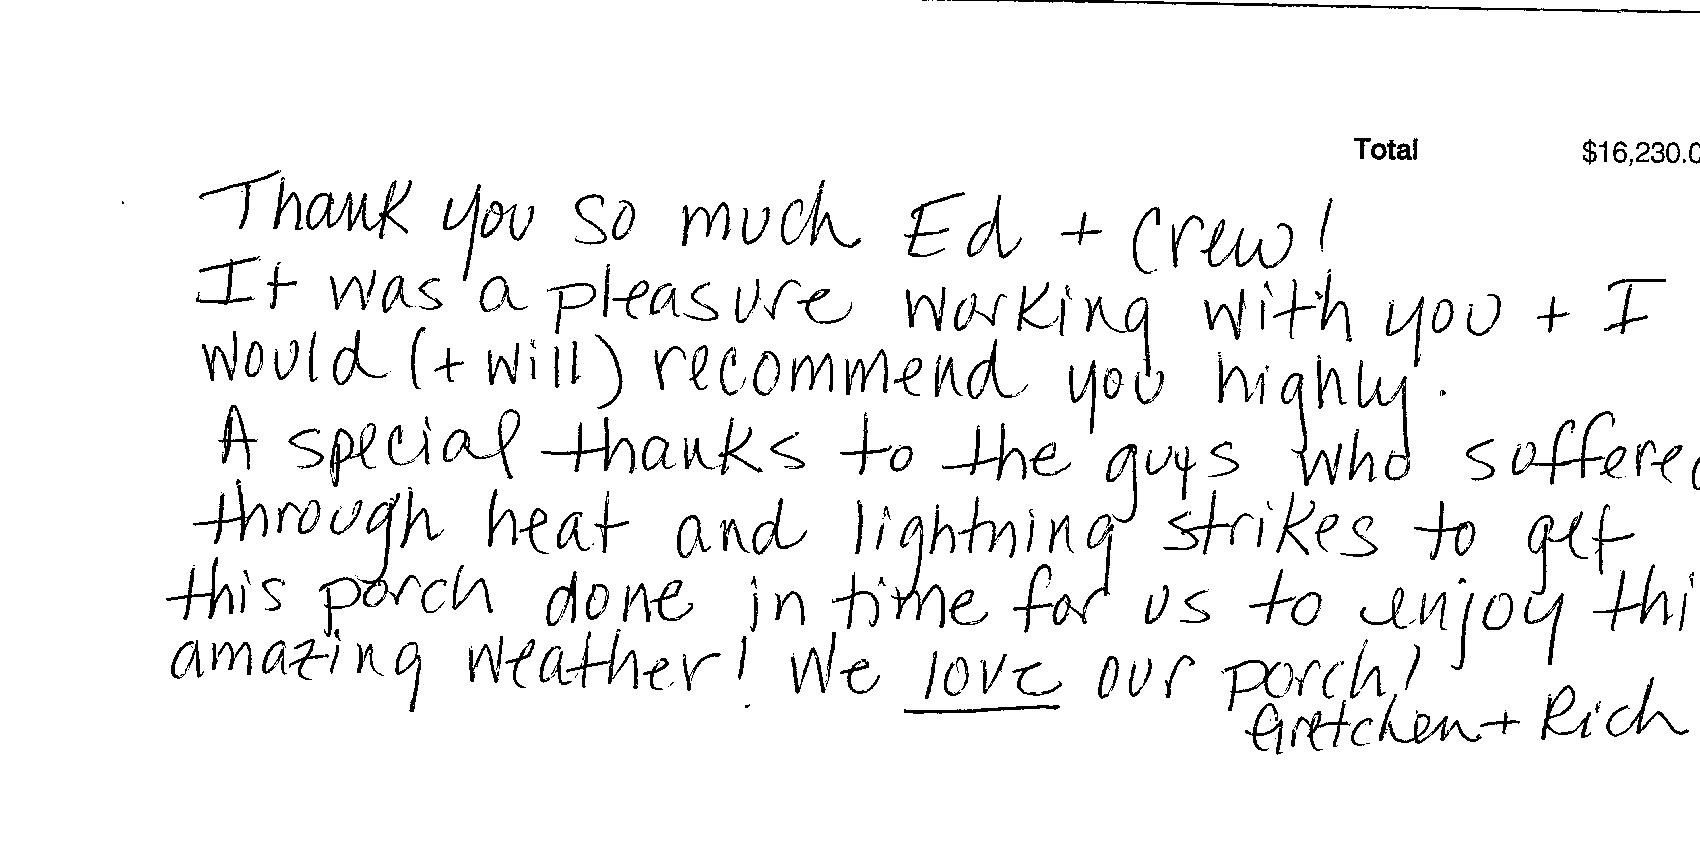 Total $16,230.0
Thank you so much Ed + Crew!
It was a pleasure working with you + I
would (+ will) recommend you highly.
A special thanks to the guys who suffered
through heat and lightning strikes to get
this porch done in time for us to enjoy thi
amazing weather! We love our porch!
Gretchen + Rich